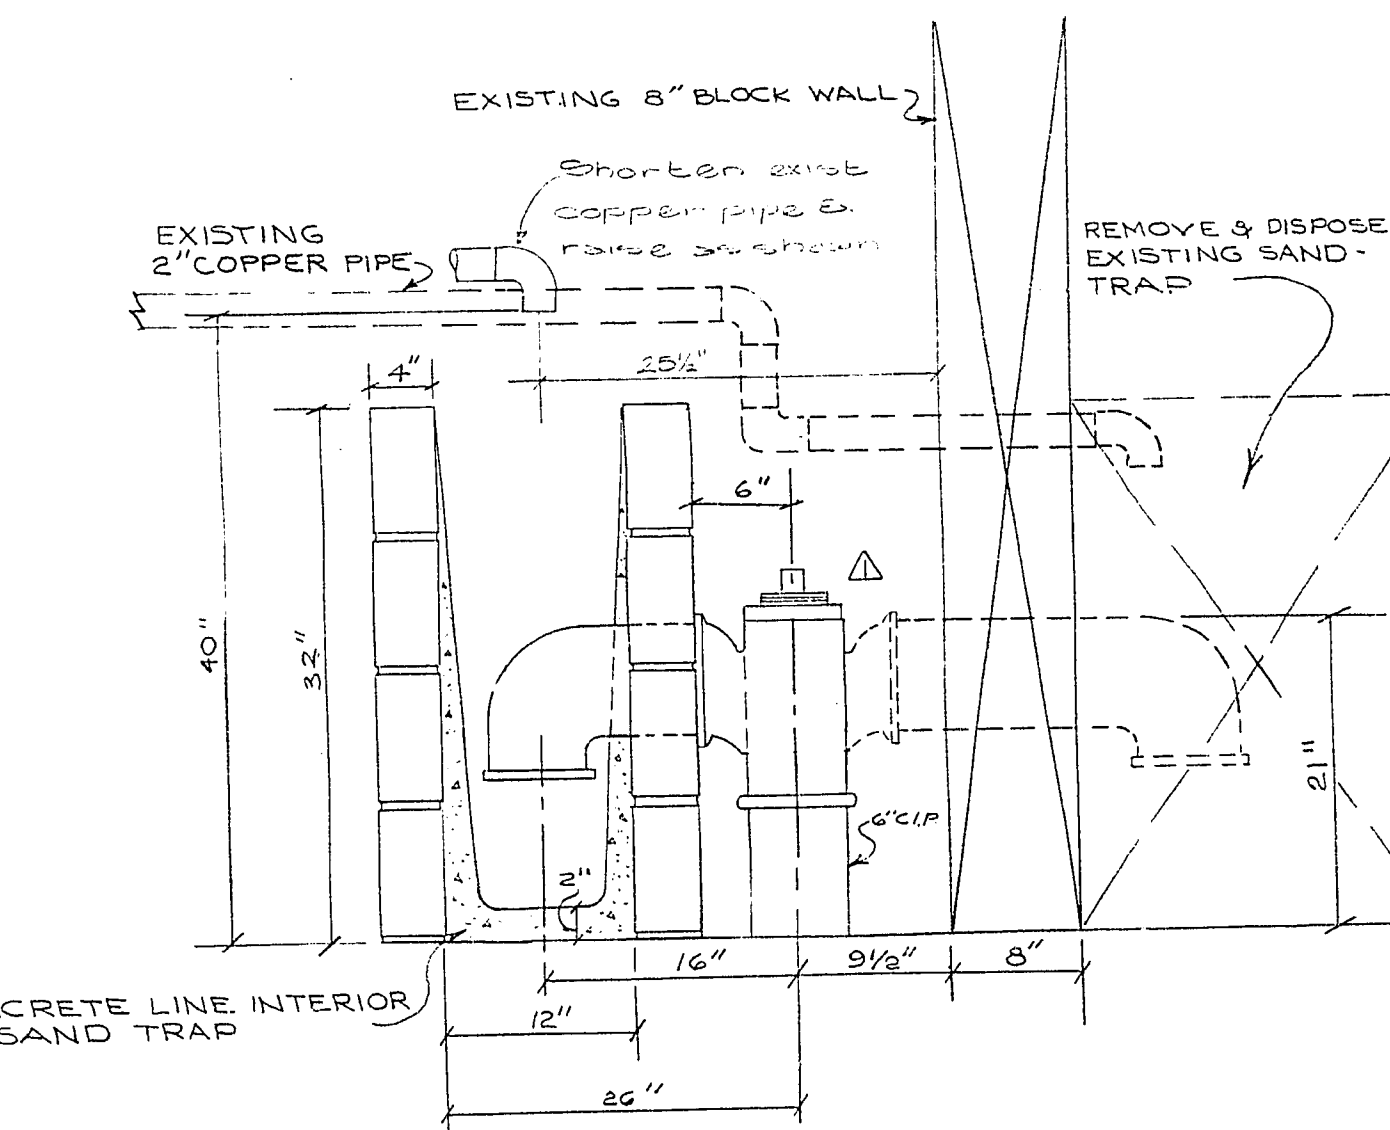 EXISTING 8" BLOCK WALL
Shorten exist
copper pipe &
raise as shown
EXISTING
2" COPPER PIPE
REMOVE & DISPOSE
EXISTING SAND-
TRAP
25½"
4"
6"
1
40"
32"
21"
6" C.I.P
2"
16"
9½"
8"
CRETE LINE INTERIOR
SAND TRAP
12"
26"